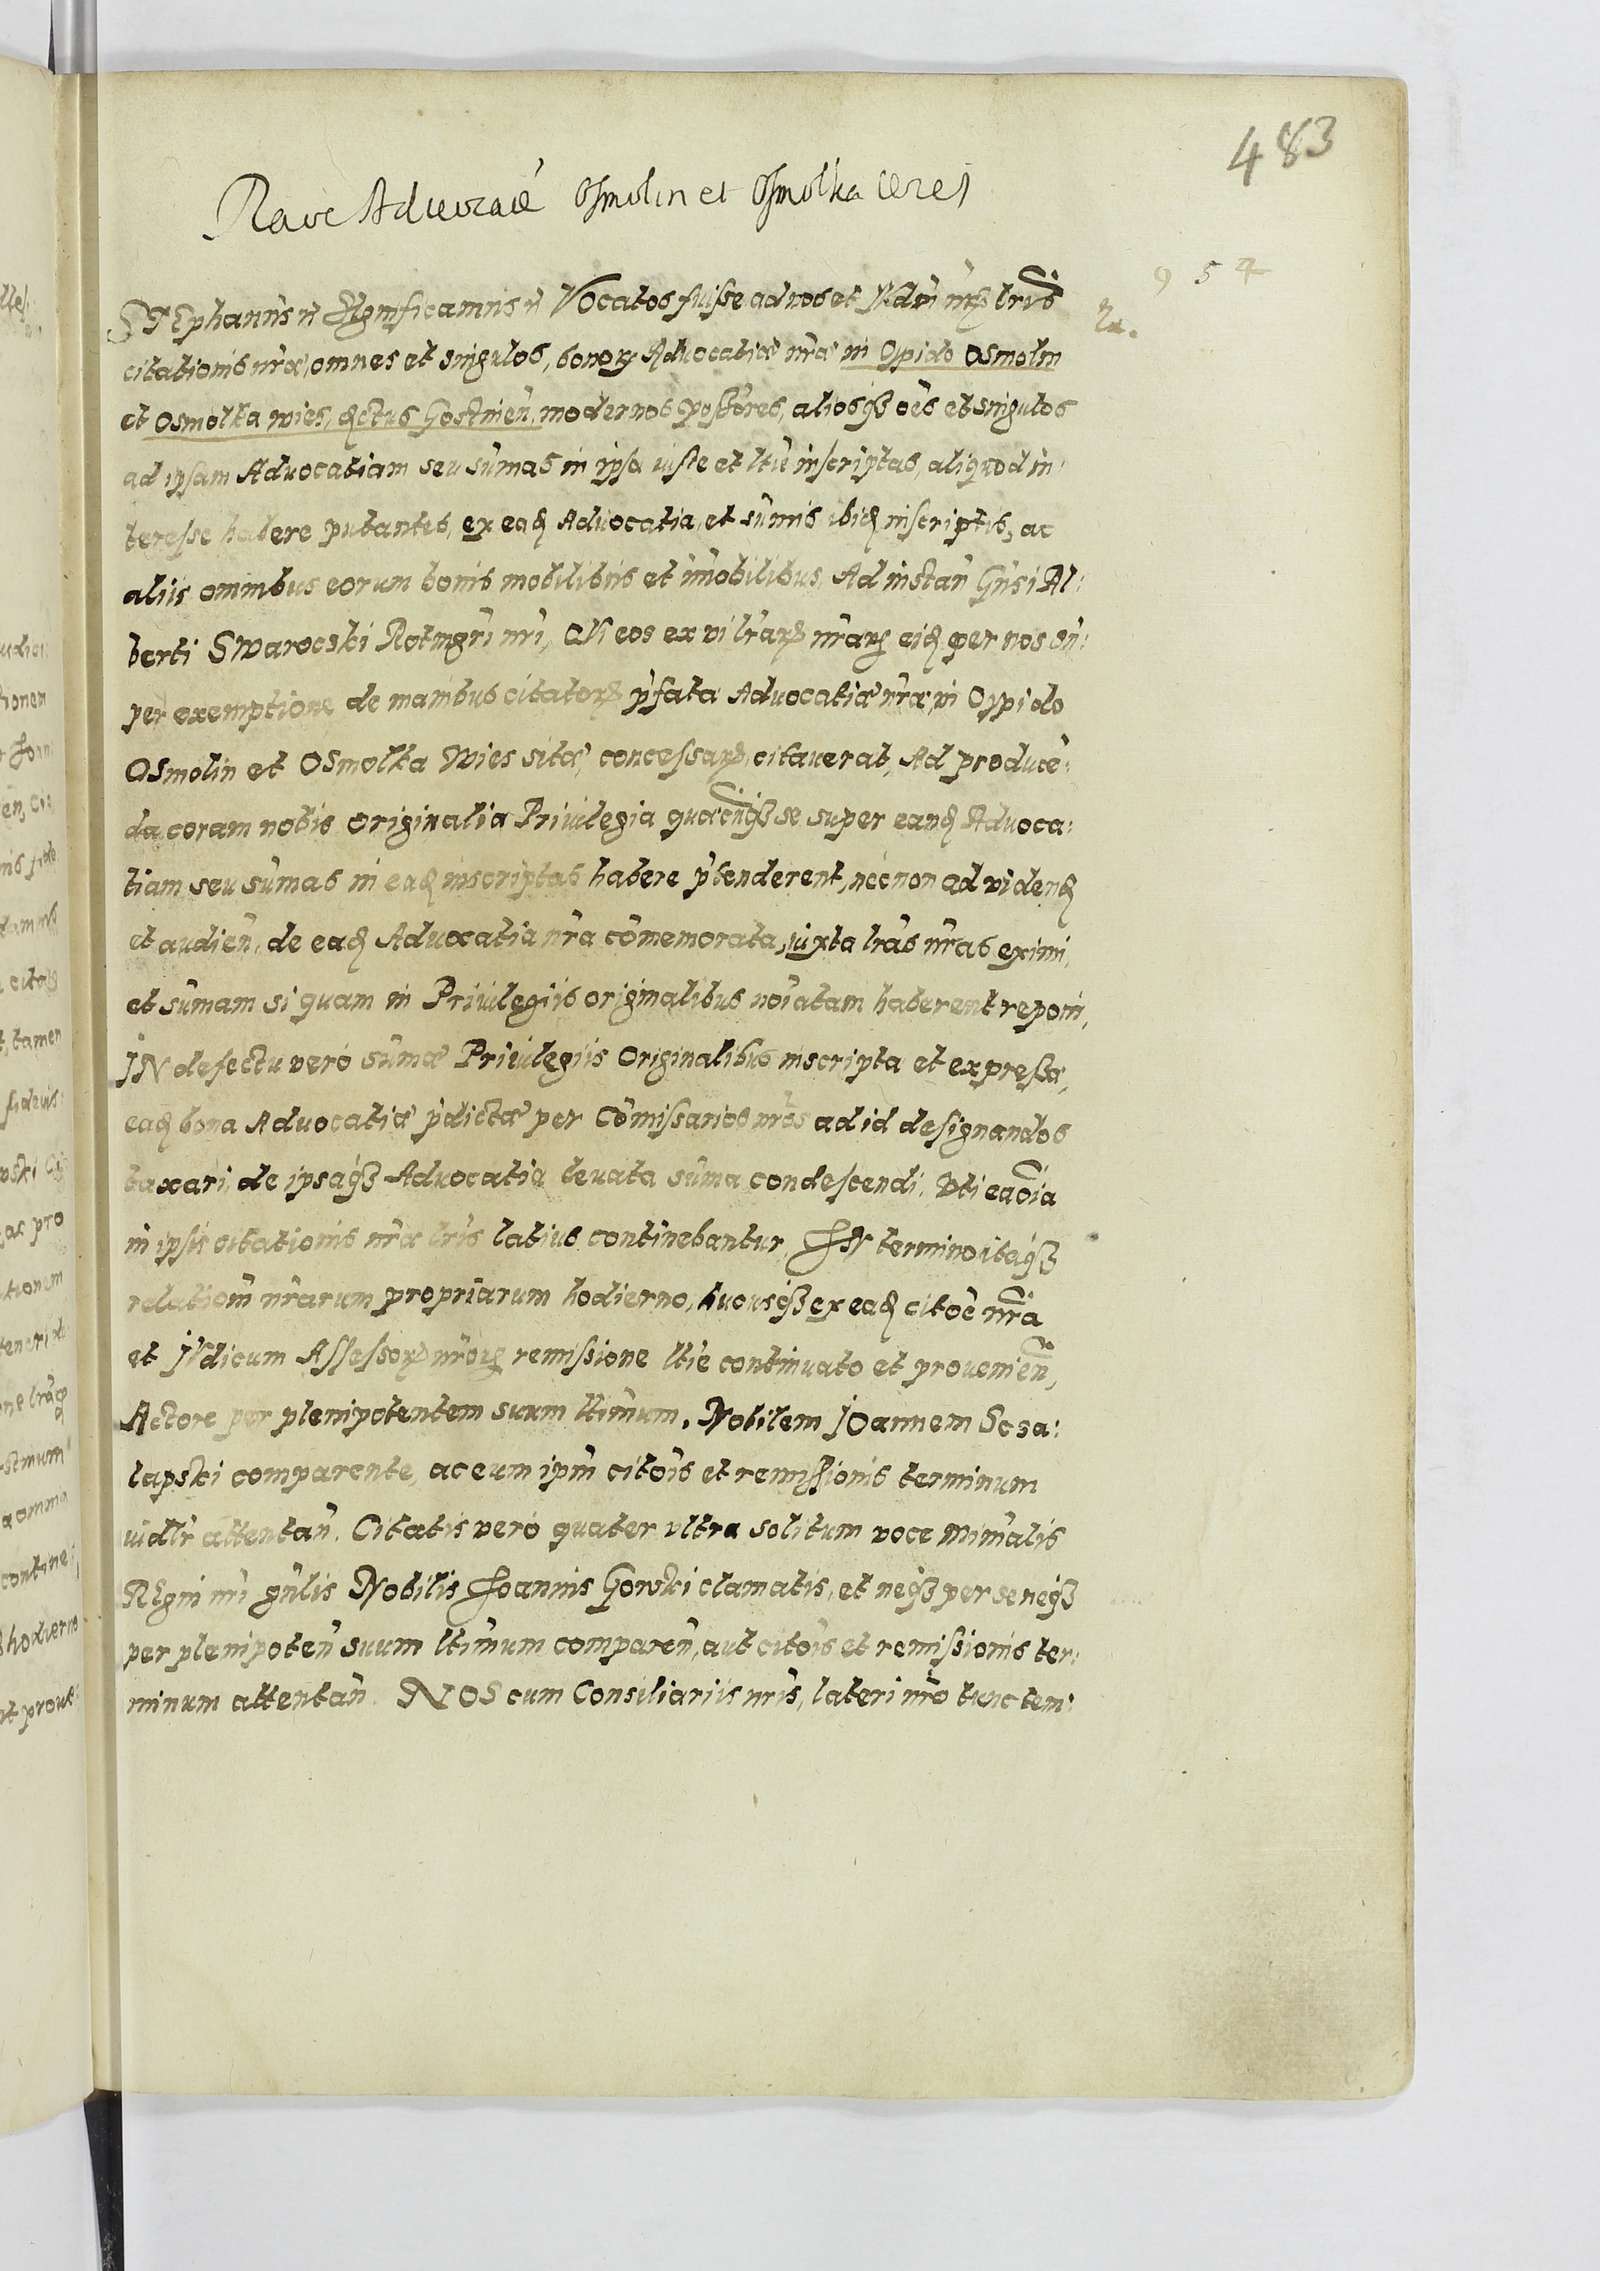 483
Advocatie Osmolin et Osmolka
9 5 4
STEphanus ꝛc̃ Significamus ꝛc̃ Vocatos fuisse ad nos et Iudm̃ nr̃m lr̃is
citationis nr̃æ, omnes et singulos, bonoꝝ Advocatiæ nr̃æ in Oppido Osmolin
et Osmolka wies, Gostinen̄. modernos possores, aliosqȝ oẽs et singulos
ad ipsam Advocatiam seu sum̄as in ipsa iuste et ltie inscriptas, aliquod in:
teresse habere putantes, ex ead Advocatia, et sum̄is ibid inscriptis, ac
aliis omnibus eorum bonis mobilibus et im̄obilibus. Ad instan̄ Gn̄si Al:
berti Swarocski Rotmgri nr̃i, Qui eos ex vi lr̃aꝝ nr̃aꝝ eid per nos su:
per exemptione de manibus citatoꝝ p̃fatæ Advocatiæ nr̃æ, in Oppido
Osmolin et Osmolka Wies sitæ, concessaꝝ, citaverat, Ad producē:
da coram nobis originalia Privilegia quæcunqȝ se super eand Advoca:
tiam seu sum̄as in ead inscriptas habere p̃tenderent, nec non ad videnđ
et audien̄, de ead Advocatia nr̃a com̄emorata, iuxta lr̃as nr̃as eximi,
et sum̄am si quam in Privilegiis originalibus noīatam haberent reponi,
IN defectu vero sum̄æ Privilegiis Originalibus inscriptæ et expressæ,
ead bona Advocatiæ p̃dictæ per Com̄issarios nr̃os ad id designandos
taxari, de ipsaqȝ Advocatia levata sum̄a condescendi. Vti ea oīa
in ipsis citationis nr̃æ lr̃is latius continebantur. IN termino itaqȝ
relationū nr̃arum propriarum hodierno, hucusqȝ ex ead citoẽ nr̃a
et Iudicum Assessoꝝ nr̃oꝝ remissione ltie continuato et provenien̄,
Actore per plenipotentem suum ltimum, Nobilem Joannem Scsa:
lapski comparente, ac eum ipm̃ citoĩs et remissionis terminum
vidlr̃ attentan̄. Citatis vero quater vltra solitum voce Minr̃alis
REgni nr̃i gn̄lis Nobilis Joannis Gorski clamatis, et neqȝ per se neqȝ
per plenipoten̄ suum ltimum comparen̄, aut citoĩs et remissionis ter:
minum attentan̄. NOS cum Consiliariis nr̃is, lateri nr̃o tunc tem: